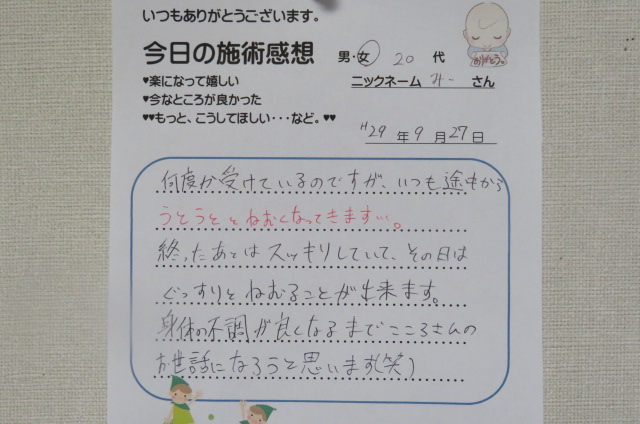 いつもありがとうございます。
今日の施術感想 男・女 20 代
ありがとう。
♥楽になって嬉しい ニックネーム みー さん
♥今なところが良かった
♥♥もっと、こうしてほしい・・・など。♥♥
H29 年 9 月 27 日
何度か受けているのですが、いつも途中から
うとうととねむくなってきます…。
終ったあとはスッキリしていて、その日は
ぐっすりとねむることが出来ます。
身体の不調が良くなるまでこころさんの
お世話になろうと思います(笑)